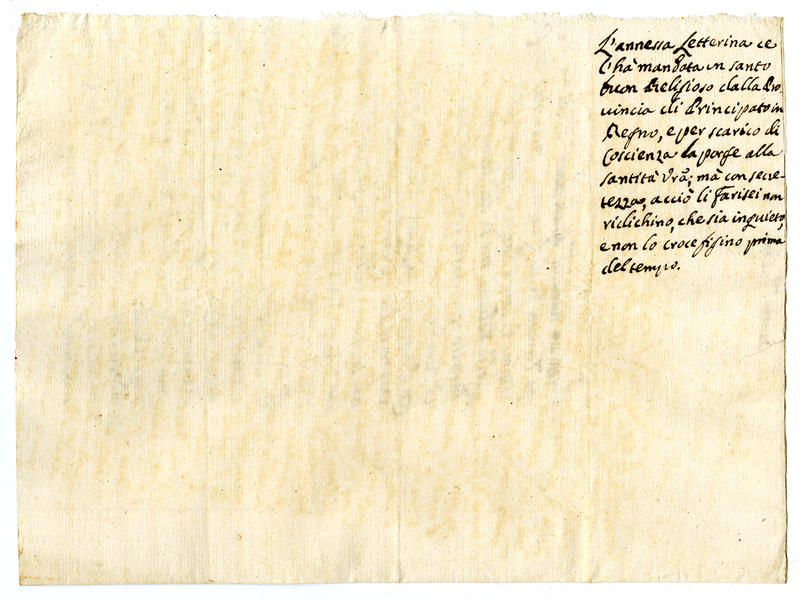 L'annessa Letterina ce
l'hà mandata un santo
buon Religioso dalla Pro-
vincia di Principato in
Regno, e per scarico di
Coscienza la porge alla
santità Vrã; mà con secre-
tezza, acciò li Farisei non
dichino, che sia inquieto,
e non lo crocefiʃino prima
del tempo.